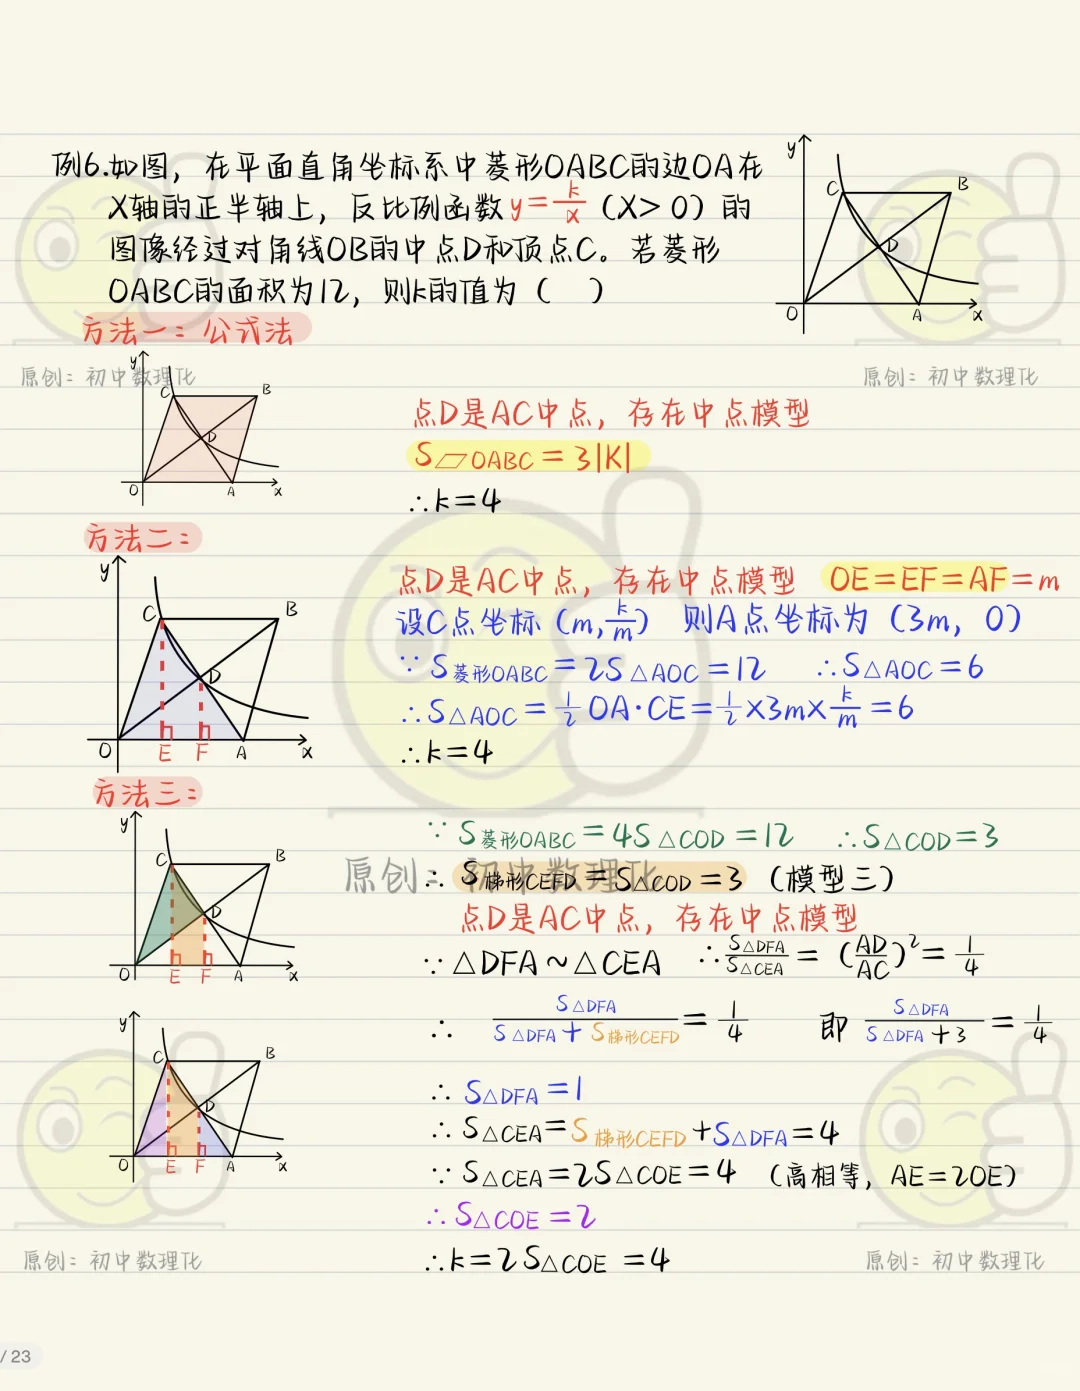 例6.如图，在平面直角坐标系中菱形OABC的边OA在
X轴的正半轴上，反比例函数y=k/x（X>0）的
图像经过对角线OB的中点D和顶点C。若菱形
OABC的面积为12，则k的值为（ ）
y
C
B
D
O
A
x
方法一：公式法
原创：初中数理化
原创：初中数理化
y
C
B
D
O
A
x
点D是AC中点，存在中点模型
S▱OABC=3|K|
∴k=4
方法二：
y
C
B
D
O
E
F
A
x
点D是AC中点，存在中点模型 OE=EF=AF=m
设C点坐标（m,k/m） 则A点坐标为（3m，0）
∵S菱形OABC=2S△AOC=12 ∴S△AOC=6
∴S△AOC=1/2OA·CE=1/2×3m×k/m=6
∴k=4
方法三：
y
C
B
D
O
E
F
A
x
∵S菱形OABC=4S△COD=12 ∴S△COD=3
原创：初中数理化
∴S梯形CEFD=S△COD=3（模型三）
点D是AC中点，存在中点模型
∵△DFA~△CEA ∴S△DFA/S△CEA=(AD/AC)²=1/4
y
C
B
D
O
E
F
A
x
∴ S△DFA/(S△DFA+S梯形CEFD)=1/4 即 S△DFA/(S△DFA+3)=1/4
∴S△DFA=1
∴S△CEA=S梯形CEFD+S△DFA=4
∵S△CEA=2S△COE=4（高相等，AE=2OE）
∴S△COE=2
∴k=2S△COE=4
原创：初中数理化
原创：初中数理化
/ 23